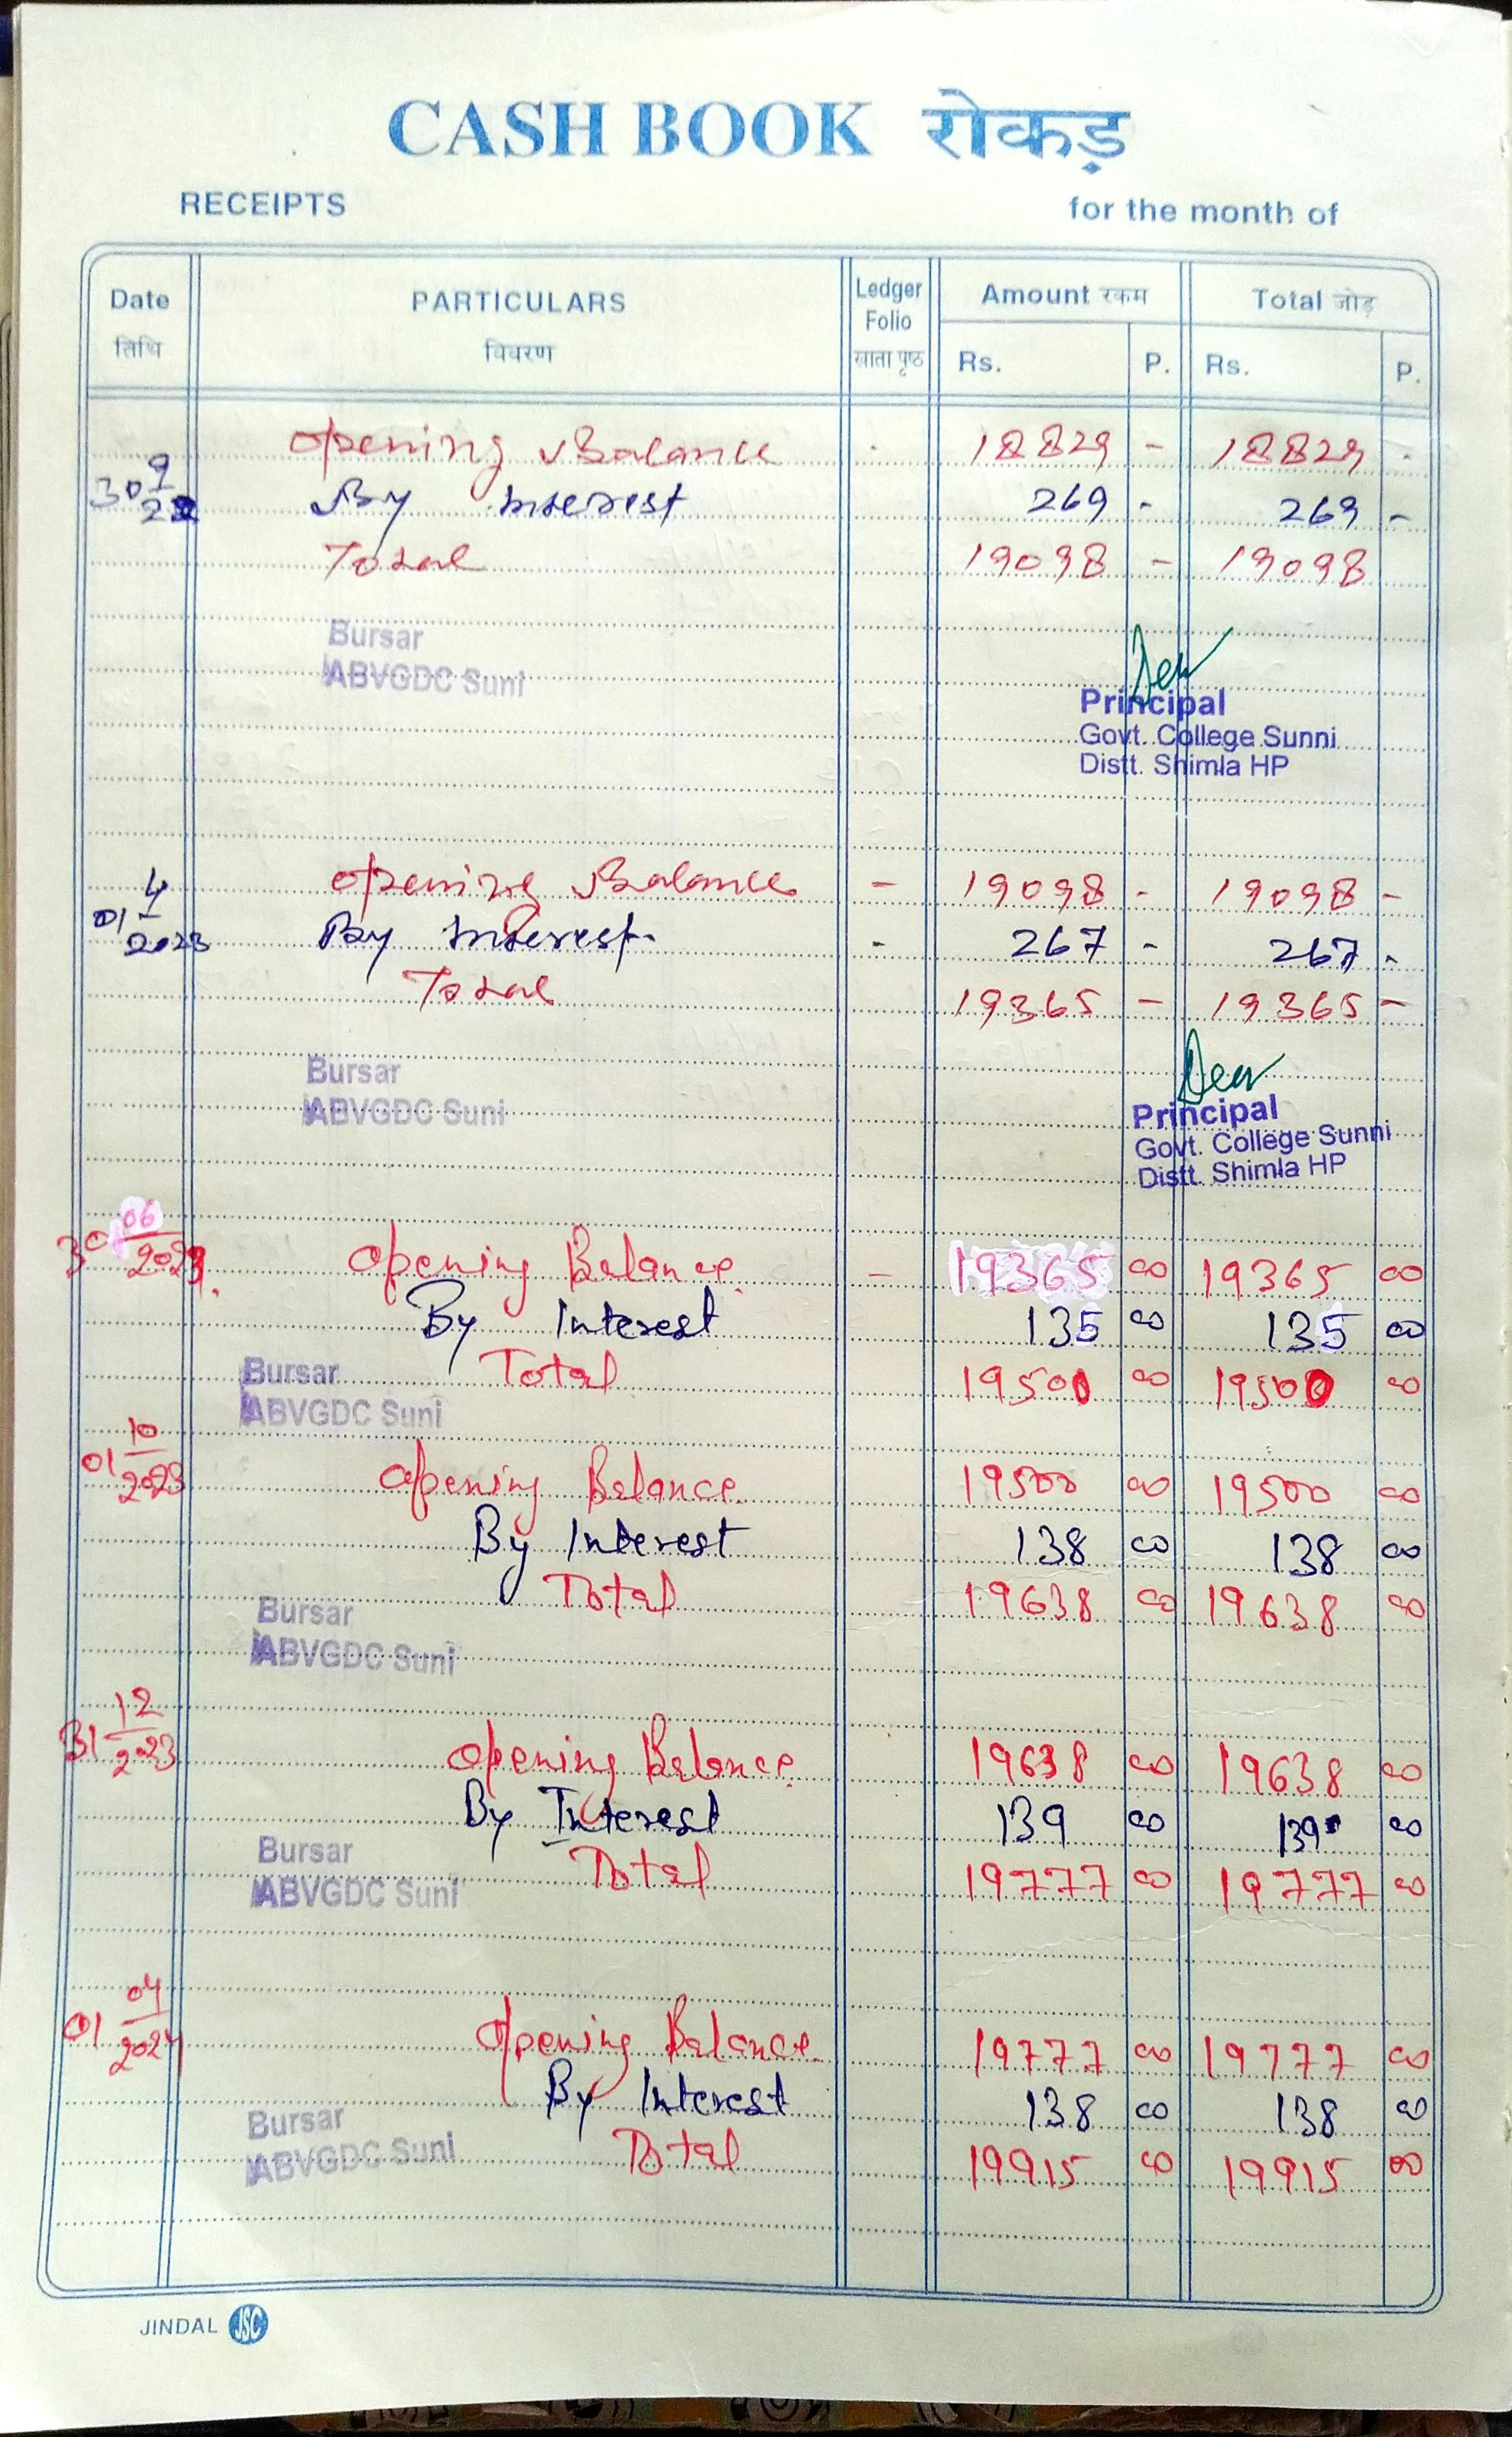 CASH BOOK रोकड़
RECEIPTS for the month of
Date PARTICULARS Ledger Folio Amount रकम Total जोड़
तिथि विवरण खाता पृष्ठ Rs. P. Rs. P.
Opening Balance 18829 - 18829 -
30 9/22 By Interest 269 - 269 -
Total 19098 - 19098
Bursar
ABVGDC Suni
Principal
Govt. College Sunni
Distt. Shimla HP
Opening Balance - 19098 - 19098 -
01 4/2023 By Interest - 267 - 267 -
Total 19365 - 19365 -
Bursar
ABVGDC Suni
Principal
Govt. College Sunni
Distt. Shimla HP
30 06/2023 Opening Balance - 19365 00 19365 00
By Interest 135 00 135 00
Total 19500 00 19500 00
Bursar
ABVGDC Suni
01 10/2023 Opening Balance 19500 00 19500 00
By Interest 138 00 138 00
Total 19638 00 19638 00
Bursar
ABVGDC Suni
31 12/2023 Opening Balance 19638 00 19638 00
By Interest 139 00 139 00
Total 19777 00 19777 00
Bursar
ABVGDC Suni
01 04/2024 Opening Balance 19777 00 19777 00
By Interest 138 00 138 00
Total 19915 00 19915 00
Bursar
ABVGDC Suni
JINDAL JSC